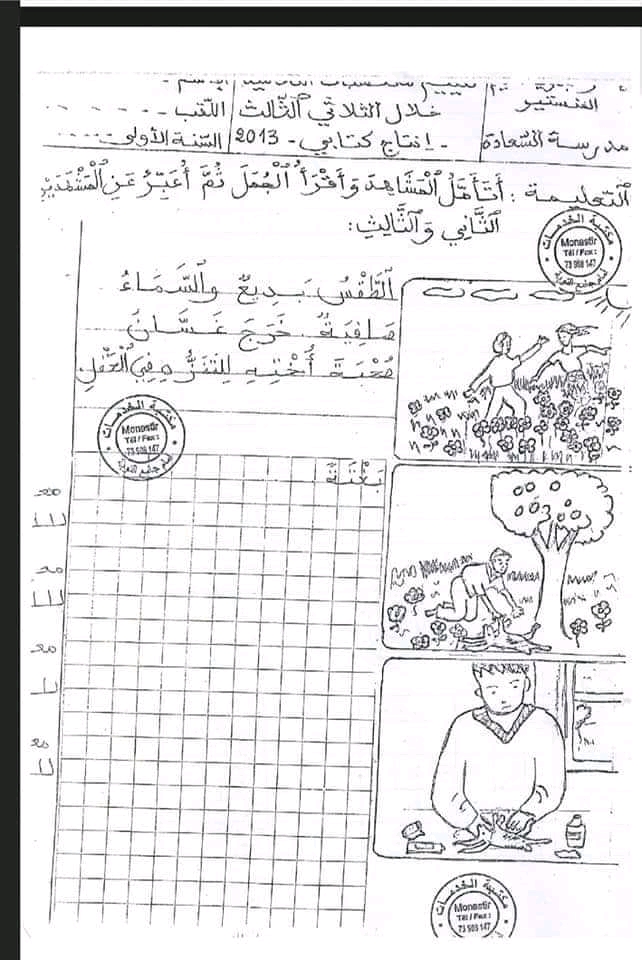 المنستير
مدرسة السّعادة
خلال الثلاثي الثّالث
- إنتاج كتابي - 2013
اللّقب - - - - -
السّنة الأولى.....
التّعليمة : أَتَأَمَّلُ الْمَشَاهِدَ وَأَقْرَأُ الْجُمَلَ ثُمَّ أُعَبِّرُ عَنِ الْمَشْهَدَيْنِ
الثَّانِي وَالثَّالِثِ:
اَلطَّقْسُ بَدِيعٌ وَالسَّمَاءُ
صَافِيَةٌ. خَرَجَ غَسَّانُ
صُحْبَةَ أُخْتِهِ لِلتَّنَزُّهِ فِي الْحَقْلِ.
بَغْتَةً
مكتبة الخدمات
Monastir
Tél / Fax :
73 908 147
مكتبة الخدمات
Monastir
Tél / Fax :
73 908 147
مكتبة الخدمات
Monastir
Tél / Fax :
73 908 147